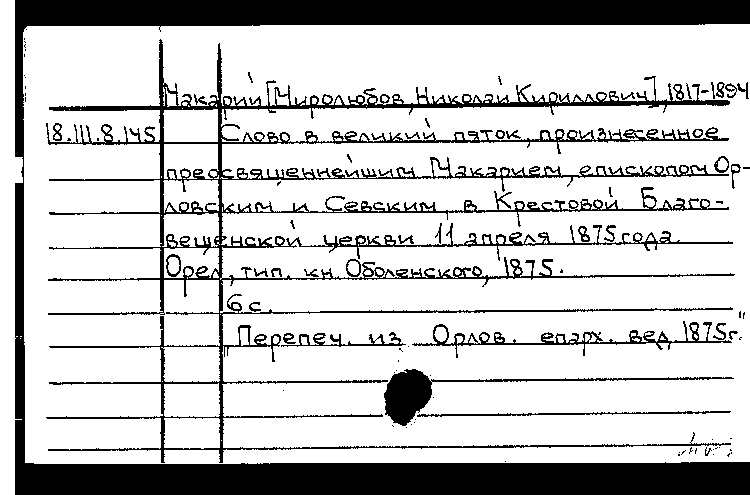 Макарий [Миролюбов, Николай Кириллович], 1817-1894
18.III.8.145 Слово в великий пяток, произнесенное
преосвященнейшим Макарием, епископом Ор-
ловским и Севским, в Крестовой Благо-
вещенской церкви 11 апреля 1875 года.
Орел, тип. кн. Оболенского, 1875.
6 с.
"Перепеч. из Орлов. епарх. вед. 1875г."